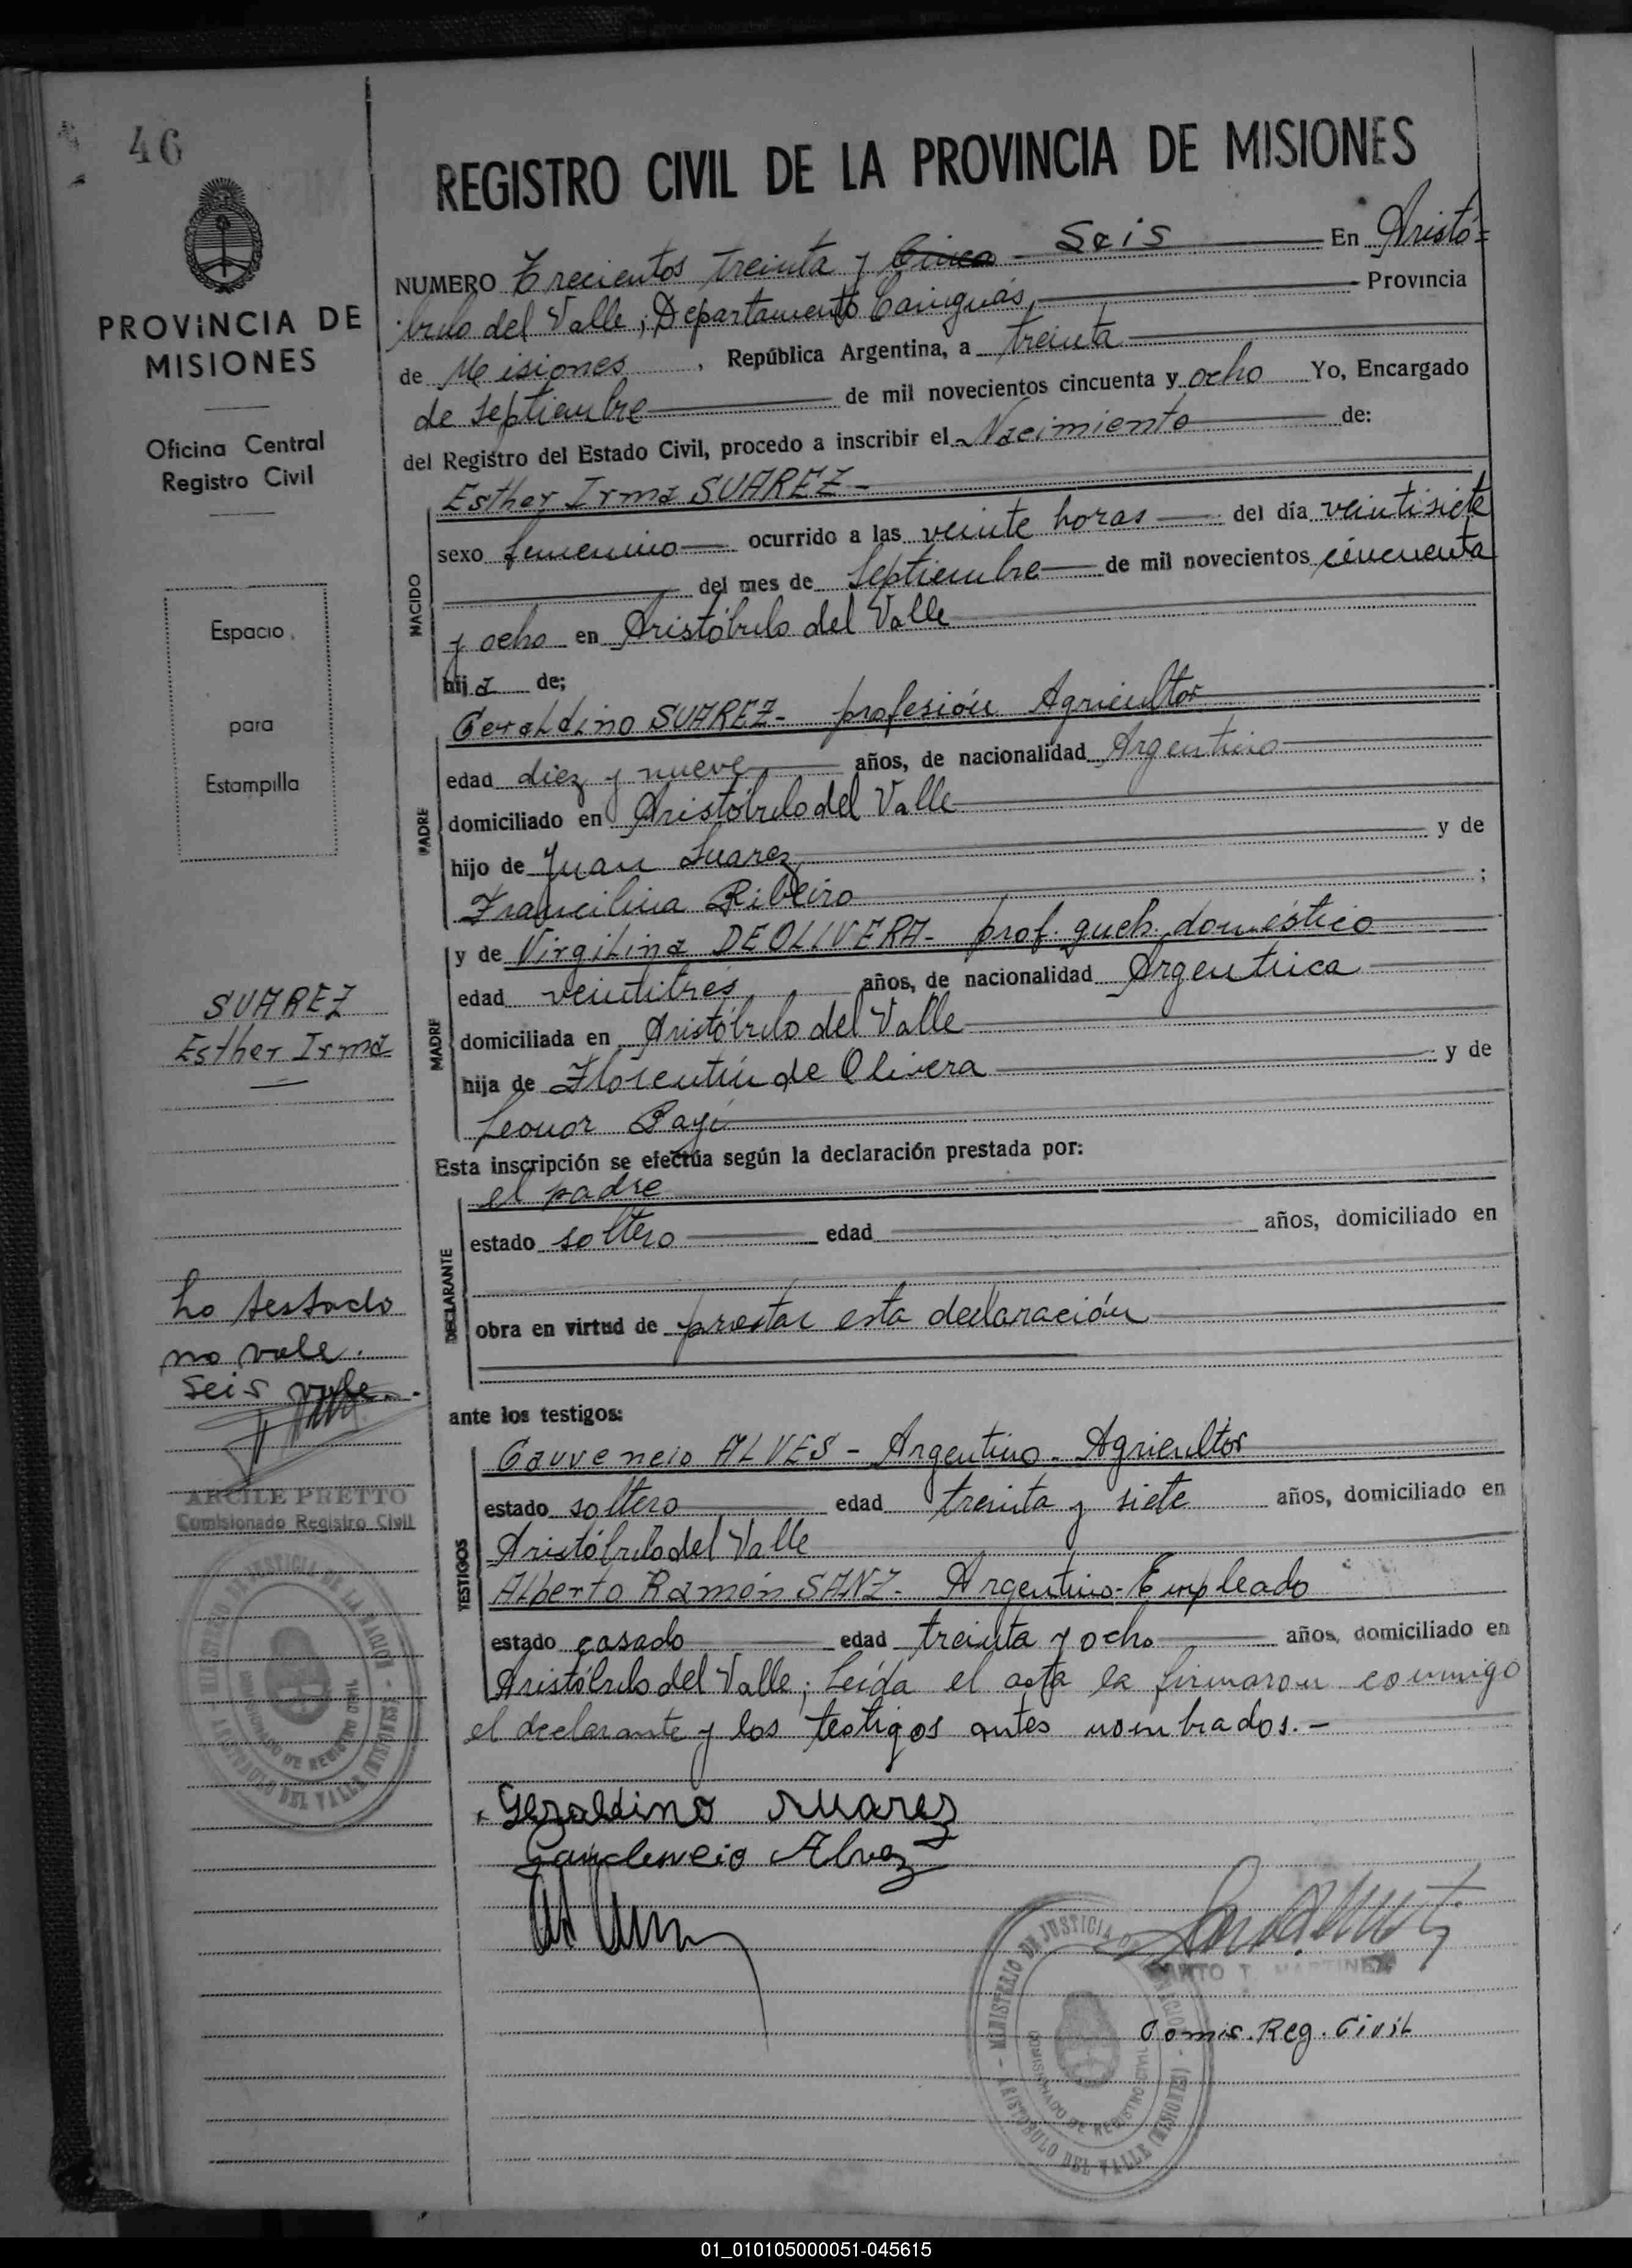 46
REGISTRO CIVIL DE LA PROVINCIA DE MISIONES
PROVINCIA DE
MISIONES
Oficina Central
Registro Civil
Espacio
para
Estampilla
SUAREZ
Esther Irma
Lo testado
no vale.
seis vale.
ARCILE PRETTO
Comisionado Registro Civil
MINISTERIO DE JUSTICIA DE LA NACION - ARISTOBULO DEL VALLE (MISIONES)
COMISIONADO DE REGISTRO CIVIL
NUMERO Trecientos treinta y Cinco - Seis En Aristó=
bulo del Valle, Departamento Cainguás, Provincia
de Misiones, República Argentina, a treinta
de septiembre de mil novecientos cincuenta y ocho Yo, Encargado
del Registro del Estado Civil, procedo a inscribir el Nacimiento de:
NACIDO
Esther Irma SUAREZ-
sexo femenino ocurrido a las veinte horas del día veintisiete
del mes de Septiembre de mil novecientos cincuenta
y ocho en Aristóbulo del Valle
hija de;
PADRE
Geraldino SUAREZ- profesión Agricultor
edad diez y nueve años, de nacionalidad Argentino
domiciliado en Aristóbulo del Valle
hijo de Juan Suarez y de
Francilina Ribeiro ;
MADRE
y de Virgilina DEOLIVERA- prof. queh. doméstico
edad veintitres años, de nacionalidad Argentina
domiciliada en Aristóbulo del Valle
hija de Florentin de Olivera y de
Leonor
Esta inscripción se efectúa según la declaración prestada por:
DECLARANTE
el padre
estado soltero edad años, domiciliado en
obra en virtud de prestar esta declaración
ante los testigos:
TESTIGOS
ALVES - Argentino - Agricultor
estado soltero edad treinta y siete años, domiciliado en
Aristóbulo del Valle
Alberto Ramón SANZ- Argentino-Empleado
estado casado edad treinta y ocho años, domiciliado en
Aristóbulo del Valle; Leída el acta la firmaron conmigo
el declarante y los testigos antes nombrados.-
Geraldino Suarez
Alvez
MARTINEZ
Comis. Reg. Civil
MINISTERIO DE JUSTICIA DE LA NACION - ARISTOBULO DEL VALLE (MISIONES)
COMISIONADO DE REGISTRO CIVIL
01_010105000051-045615